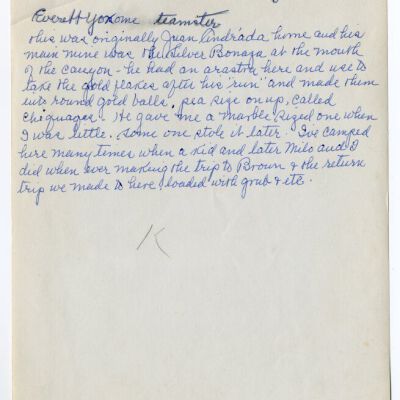 Everett Yoxome teamster
this was originally Juan Andráda home and his
main mine was the Silver Bonaga at the mouth
of the canyon - he had an arastre here and use to
take the gold flakes after his "run" and made them
into round gold balls, pea size on up, called
chiguages. He gave me a marble sized one when
I was little, some one stole it later. I've camped
here many times when a kid and later Milo and I
did when ever making the trip to Brown & the return
trip we made to here, loaded with grub & etc.
K